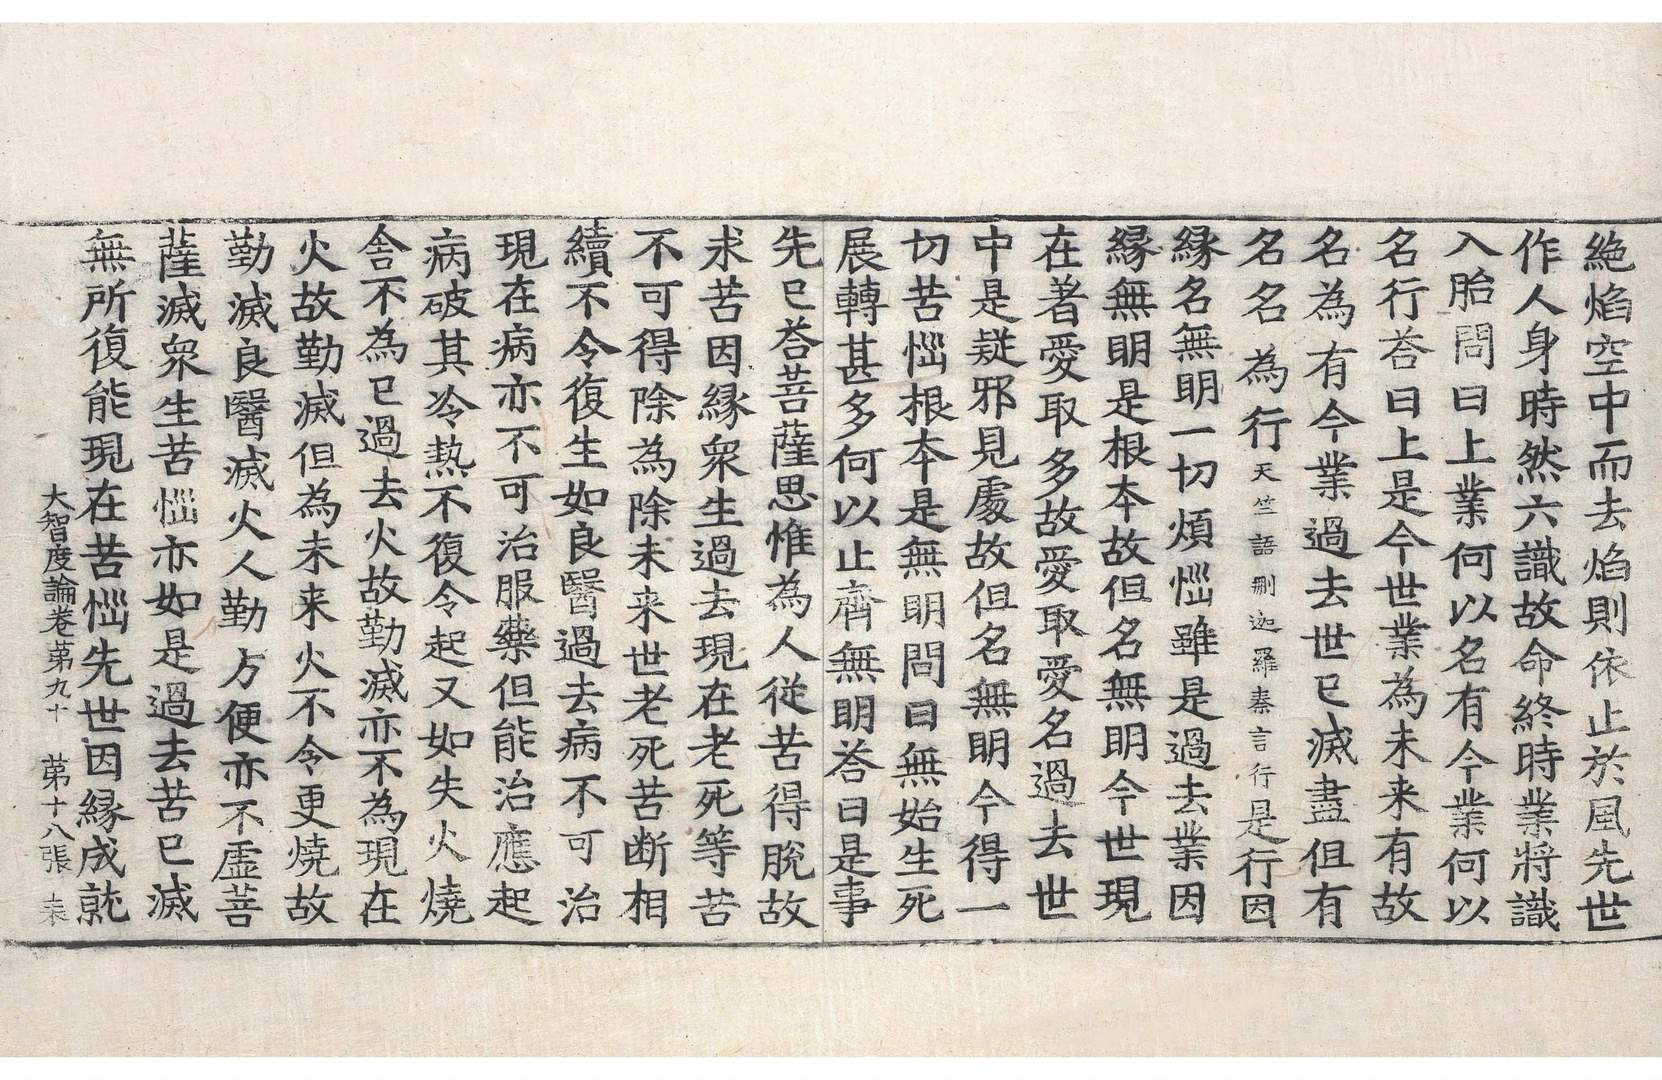 絶焰空中而去焰則依止於風先世
作人身時然六識故命終時業將識
入胎問曰上業何以名有今業何以
名行荅曰上是今世業為未来有故
名為有今業過去世已滅盡但有
名名為行天竺語刪迦羅秦言行是行因
縁名無明一切煩𢙉雖是過去業因
縁無明是根本故但名無明今世現
在著愛取多故愛取愛名過去世
中是疑邪見處故但名無明今得一
切苦𢙉根本是無明問曰無始生死
展轉甚多何以止齊無明荅曰是事
先已荅菩薩思惟為人従苦得脫故
求苦因縁衆生過去現在老死等苦
不可得除為除未来世老死苦断相
續不令復生如良醫過去病不可治
現在病亦不可治服藥但能治應起
病破其冷熱不復令起又如失火燒
舍不為已過去火故勤滅亦不為現在
火故勤滅但為未来火不令更燒故
勤滅良醫滅火人勤方便亦不虛菩
薩滅衆生苦𢙉亦如是過去苦已滅
無所復能現在苦𢙉先世因縁成就
大智度論卷第九十　第十八張